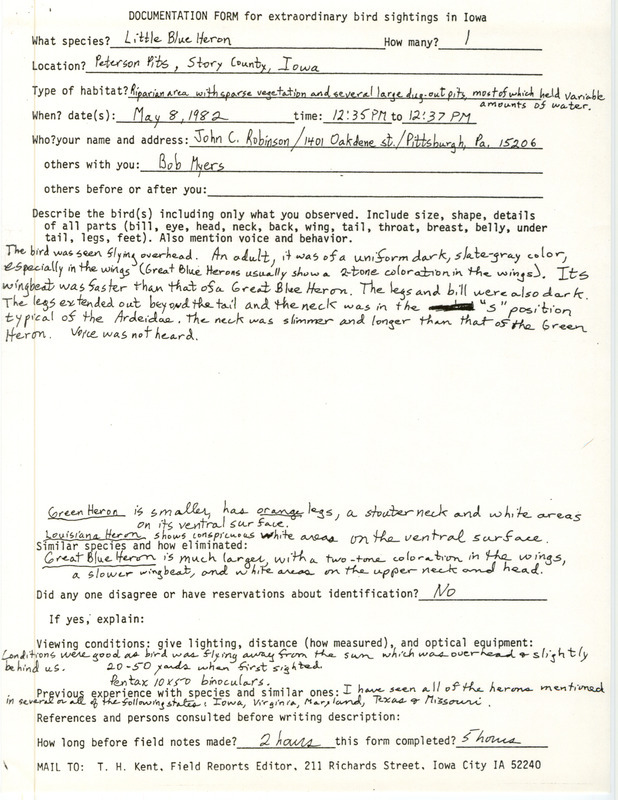 DOCUMENTATION FORM for extraordinary bird sightings in Iowa
What species? Little Blue Heron How many? 1
Location? Peterson Pits, Story County, Iowa
Type of habitat? Riparian area with sparse vegetation and several large dug-out pits, most of which held variable
amounts of water.
When? date(s): May 8, 1982 time: 12:35 PM to 12:37 PM
Who? your name and address: John C. Robinson/1401 Oakdene st./Pittsburgh, Pa. 15206
others with you: Bob Myers
others before or after you:
Describe the bird(s) including only what you observed. Include size, shape, details
of all parts (bill, eye, head, neck, back, wing, tail, throat, breast, belly, under
tail, legs, feet). Also mention voice and behavior.
The bird was seen flying overhead. An adult, it was of a uniform dark, slate-gray color,
especially in the wings (Great Blue Herons usually show a 2-tone coloration in the wings). Its
wingbeat was faster than that of a Great Blue Heron. The legs and bill were also dark.
The legs extended out beyond the tail and the neck was in the "S" position
typical of the Ardeidae. The neck was slimmer and longer than that of the Green
Heron. Voice was not heard.
Green Heron is smaller, has orange legs, a stouter neck and white areas
on its ventral surface.
Louisiana Heron shows conspicuous white areas on the ventral surface.
Similar species and how eliminated:
Great Blue Heron is much larger, with a two-tone coloration in the wings,
a slower wingbeat, and white areas on the upper neck and head.
Did any one disagree or have reservations about identification? No
If yes, explain:
Viewing conditions: give lighting, distance (how measured), and optical equipment:
Conditions were good as bird was flying away from the sun which was overhead & slightly
behind us. 20-50 yards when first sighted
Pentax 10x50 binoculars.
Previous experience with species and similar ones: I have seen all of the herons mentioned
in several or all of the following states: Iowa, Virginia, Maryland, Texas & Missouri.
References and persons consulted before writing description:
How long before field notes made? 2 hours this form completed? 5 hours
MAIL TO: T. H. Kent, Field Reports Editor, 211 Richards Street, Iowa City IA 52240